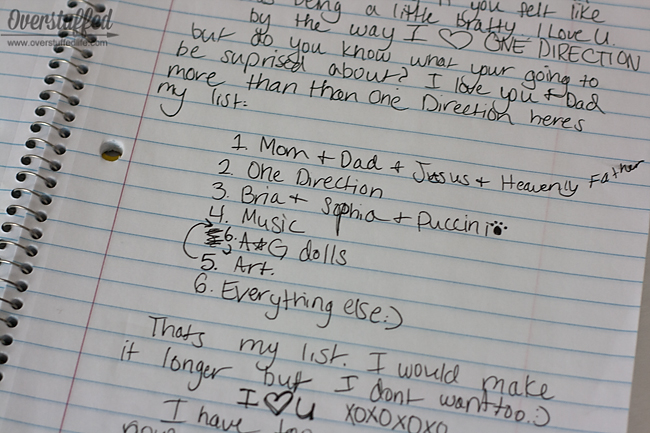 Overstuffed
www.overstuffedlife.com
being a little Bratty. I Love U.
you felt like
by the way I ♡ ONE DIRECTION
but do you know what your going to
be suprised about? I love you + Dad
more than than One Direction heres
my list:
1. Mom + Dad + Jesus + Heavenly Father
2. One Direction
3. Bria + Sophia + Puccini
4. Music
6. A☆G dolls
5. Art.
6. Everything else:)
Thats my list. I would make
it longer but I dont want too.:)
I ♡ U XOXOXOXO
I have